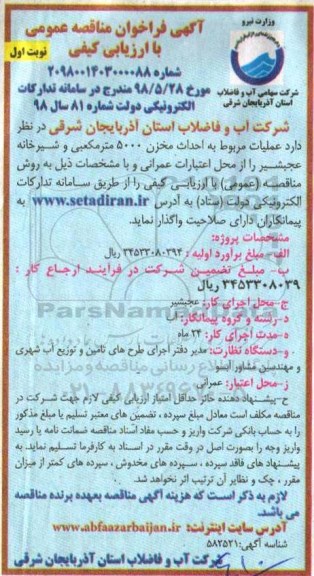 وزارت نیرو
شرکت سهامی آب و فاضلاب
استان آذربایجان شرقی
آگهی فراخوان مناقصه عمومی
با ارزیابی کیفی
نوبت اول
شماره ۲۰۹۸۰۰۱۴۰۳۰۰۰۰۸۸
مورخ ۹۸/۵/۲۸ مندرج در سامانه تدارکات
الکترونیکی دولت شماره ۸۱ سال ۹۸
شرکت آب و فاضلاب استان آذربایجان شرقی در نظر
دارد عملیات مربوط به احداث مخزن ۵۰۰۰ مترمکعبی و شیرخانه
عجبشیر را از محل اعتبارات عمرانی و با مشخصات ذیل به روش
مناقصه (عمومی) با ارزیابی کیفی را از طریق سامانه تدارکات
الکترونیکی دولت (ستاد) به آدرس www.setadiran.ir به
پیمانکاران دارای صلاحیت واگذار نماید.
مشخصات پروژه:
الف- مبلغ برآورد اولیه : ۳۴۵۳۳۰۸۰۳۹۴ ریال
ب- مبلغ تضمین شرکت در فرآیند ارجاع کار :
۳۴۵۳۳۰۸۰۳۹ ریال
ج-محل اجرای کار: عجبشیر
د-رشته و گروه پیمانکار: آب
ه-مدت اجرای کار: ۲۴ ماه
و-دستگاه نظارت: مدیر دفتر اجرای طرح های تامین و توزیع آب شهری
و مهندسین مشاور آبنیو
ز-محل اعتبار: عمرانی
ح-پیشنهاد دهنده حائز حداقل امتیاز ارزیابی کیفی لازم جهت شرکت در
مناقصه مکلف است معادل مبلغ سپرده ، تضمین های معتبر تسلیم یا مبلغ مذکور
را به حساب بانکی شرکت واریز و حسب مفاد اسناد مناقصه ضمانت نامه یا رسید
واریز وجه را بصورت اصل در وقت مقرر در اسناد به کارفرما تسلیم نماید. به
پیشنهاد های فاقد سپرده ، سپرده های مخدوش ، سپرده های کمتر از میزان
مقرر ، چک و نظایر آن ترتیب اثر نخواهد شد.
لازم به ذکر است که هزینه آگهی مناقصه بعهده برنده مناقصه
می باشد.
آدرس سایت اینترنت: www.abfaazarbaijan.ir
شناسه آگهی: ۵۸۲۵۲۱
شرکت آب و فاضلاب استان آذربایجان شرقی